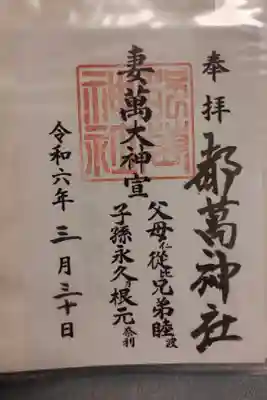 奉拝
都萬神社
父母仁從比兄弟睦波
子孫永久根元奈利
妻萬大神宣
令和六年三月三十日
都萬神社